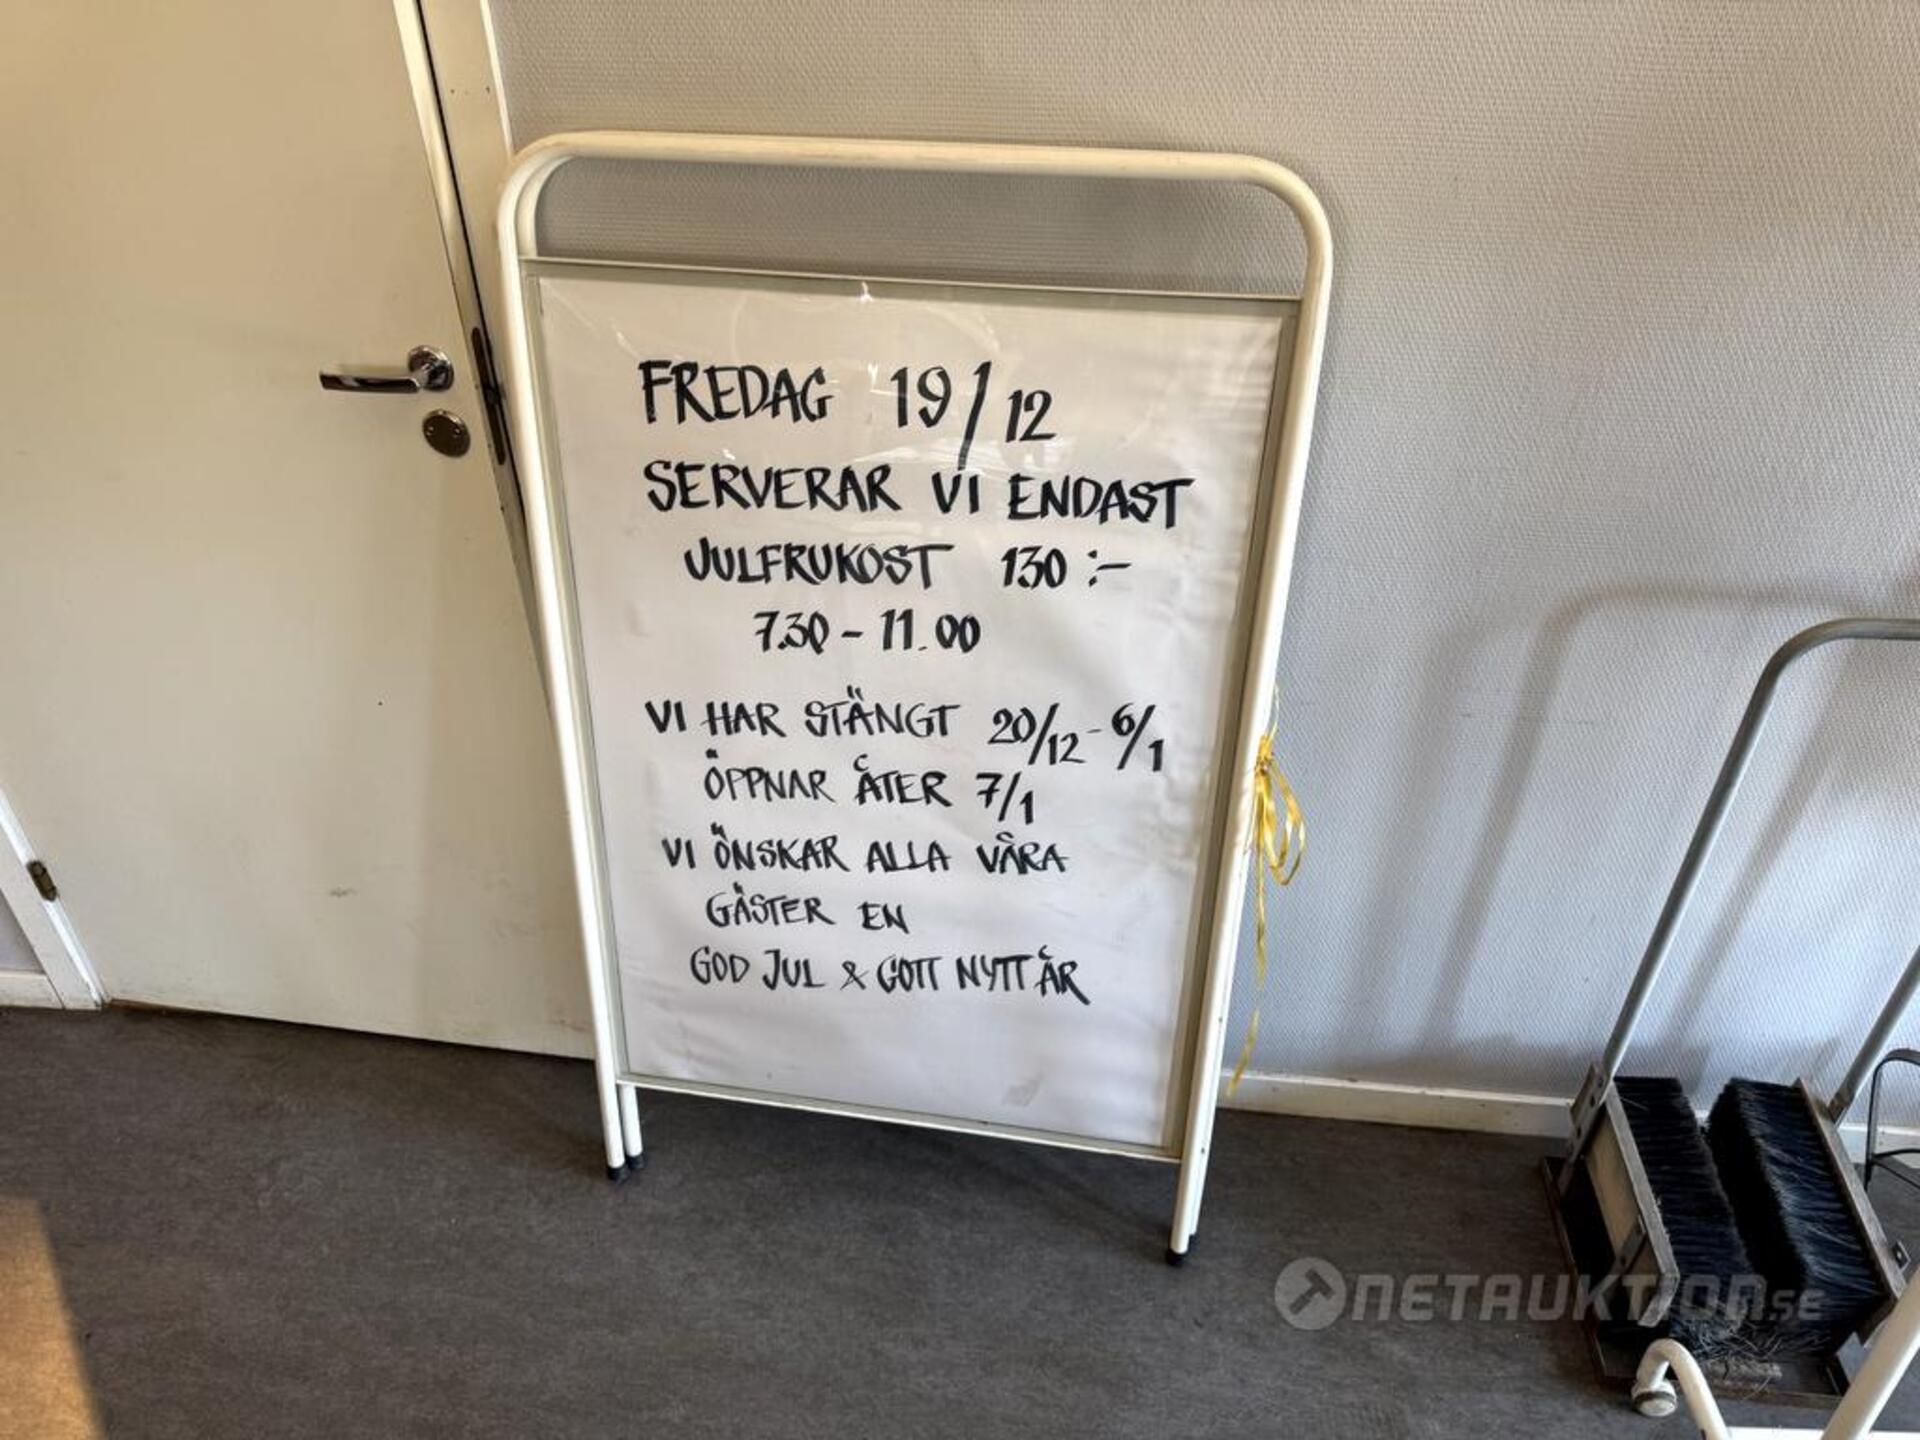 FREDAG 19/12
SERVERAR VI ENDAST
JULFRUKOST 130:-
7.30 - 11.00
VI HAR STÄNGT 20/12 - 6/1
ÖPPNAR ÅTER 7/1
VI ÖNSKAR ALLA VÅRA
GÄSTER EN
GOD JUL & GOTT NYTT ÅR
NETAUKTION.SE